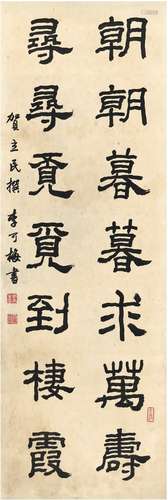 朝朝暮暮求萬壽
尋尋覓覓到棲霞
賀立民撰 李可梅書